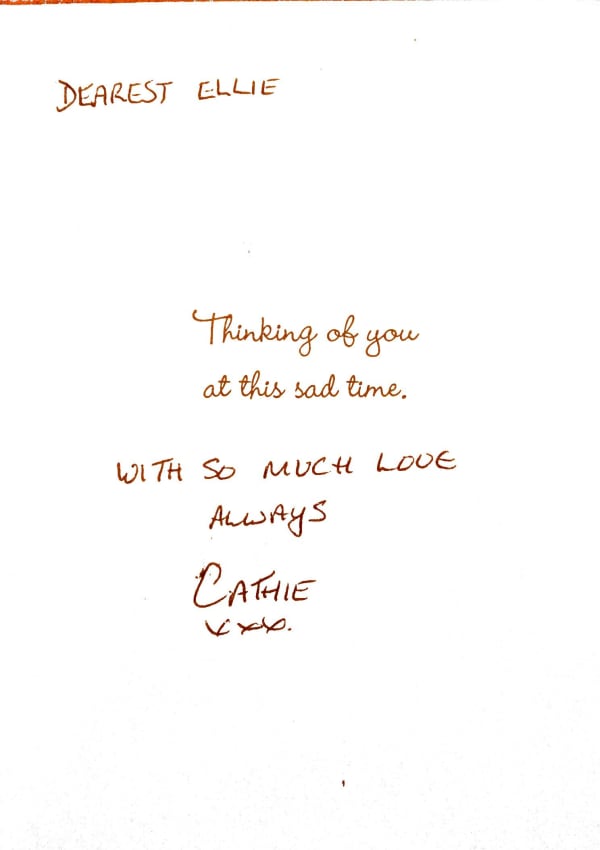 DEAREST ELLIE
Thinking of you
at this sad time.
WITH SO MUCH LOVE
ALWAYS
CATHIE
xxx.